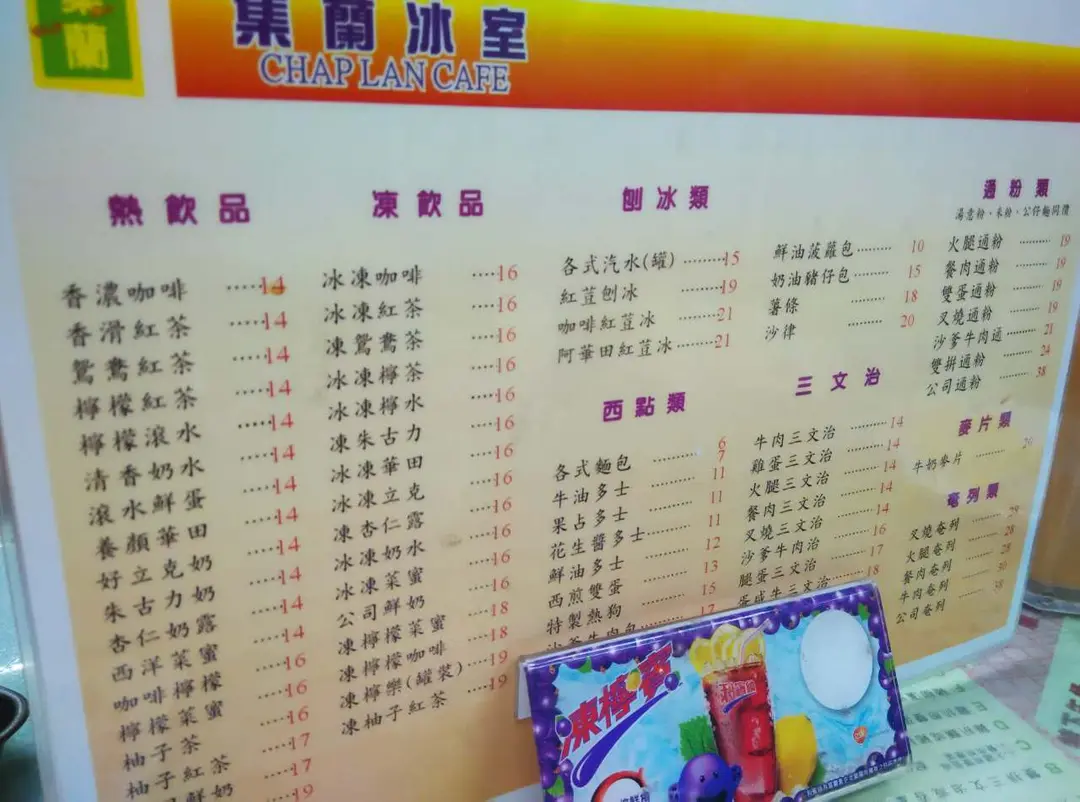 集蘭
集蘭冰室
CHAP LAN CAFE
熱飲品
香濃咖啡 ·····14
香滑紅茶 ·····14
鴛鴦紅茶 ·····14
檸檬紅茶 ·····14
檸檬滾水 ·····14
清香奶水 ·····14
滾水鮮蛋 ·····14
養顏華田 ·····14
好立克奶 ·····14
朱古力奶 ·····14
杏仁奶露 ·····14
西洋菜蜜 ·····14
咖啡檸檬 ·····16
檸檬菜蜜 ·····16
柚子茶 ·····17
柚子紅茶 ·····17
鮮奶 ·····19
凍飲品
冰凍咖啡 ····16
冰凍紅茶 ····16
凍鴛鴦茶 ····16
冰凍檸茶 ····16
冰凍檸水 ····16
凍朱古力 ····16
冰凍華田 ····16
冰凍立克 ····16
凍杏仁露 ····16
冰凍奶水 ····16
冰凍菜蜜 ····16
公司鮮奶 ····16
凍檸檬菜蜜 ····18
凍檸檬咖啡 ····18
凍檸樂(罐裝) ····19
凍柚子紅茶 ····19
刨冰類
各式汽水(罐) ········15
紅荳刨冰 ········19
咖啡紅荳冰 ········21
阿華田紅荳冰········21
鮮油菠蘿包········· 10
奶油豬仔包········· 15
薯條 ········· 18
沙律 ········· 20
西點類
各式麵包 ········· 6
牛油多士 ········· 7
果占多士 ········· 11
花生醬多士········· 11
鮮油多士 ········· 11
西煎雙蛋 ········· 12
特製熱狗 ········· 13
沙爹牛肉包 ········· 15
17
三文治
牛肉三文治 ········· 14
雞蛋三文治 ········· 14
火腿三文治 ········· 14
餐肉三文治 ········· 14
叉燒三文治 ········· 14
沙爹牛肉治 ········· 16
腿蛋三文治 ········· 17
蛋或牛三文治 ········· 18
通粉類
湯意粉、米粉、公仔麵同價
火腿通粉 ········· 19
餐肉通粉 ········· 19
雙蛋通粉 ········· 19
叉燒通粉 ········· 19
沙爹牛肉通 ········· 21
雙拼通粉 ········· 24
公司通粉 ········· 38
麥片類
牛奶麥片 ·········
奄列類
叉燒奄列 ·········
火腿奄列 ········· 28
餐肉奄列 ········· 28
牛肉奄列 ········· 30
公司奄列 ········· 38
凍檸賓
利賓納